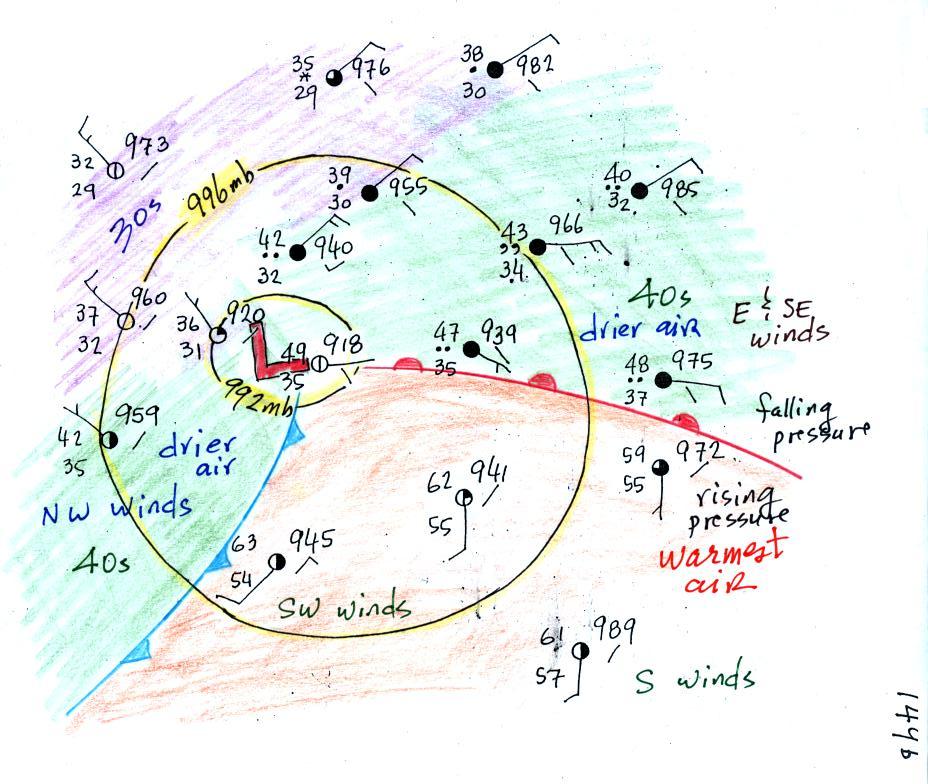 38
982
30
35
976
*
29
973
32
29
996mb
30s
39
955
30
40
985
32
43
966
,,
34
42
940
32
960
37
32
920
36
31
40s
drier air
E & SE
winds
49
918
35
47
939
35
48
975
37
992mb
959
42
35
drier
air
falling
pressure
59
972
55
NW winds
rising
pressure
62
941
55
Warmest
air
40s
63
945
54
SW winds
61
989
57
S winds
144b